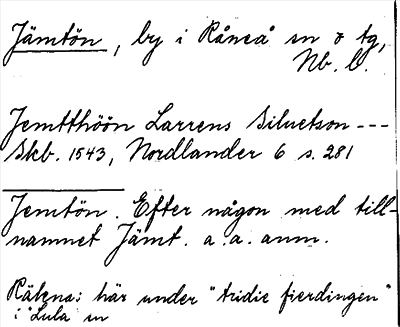 Jämtön, by i Råneå sn o tg,
Nb. l.
Jemtthöön Larrens Siluetson ---
Skb. 1543, Nordlander 6 s. 281
Jemtön. Efter någon med till-
namnet Jämt. a. a. anm.
Räkna: här under "tridie fierdingen"
i Lula sn